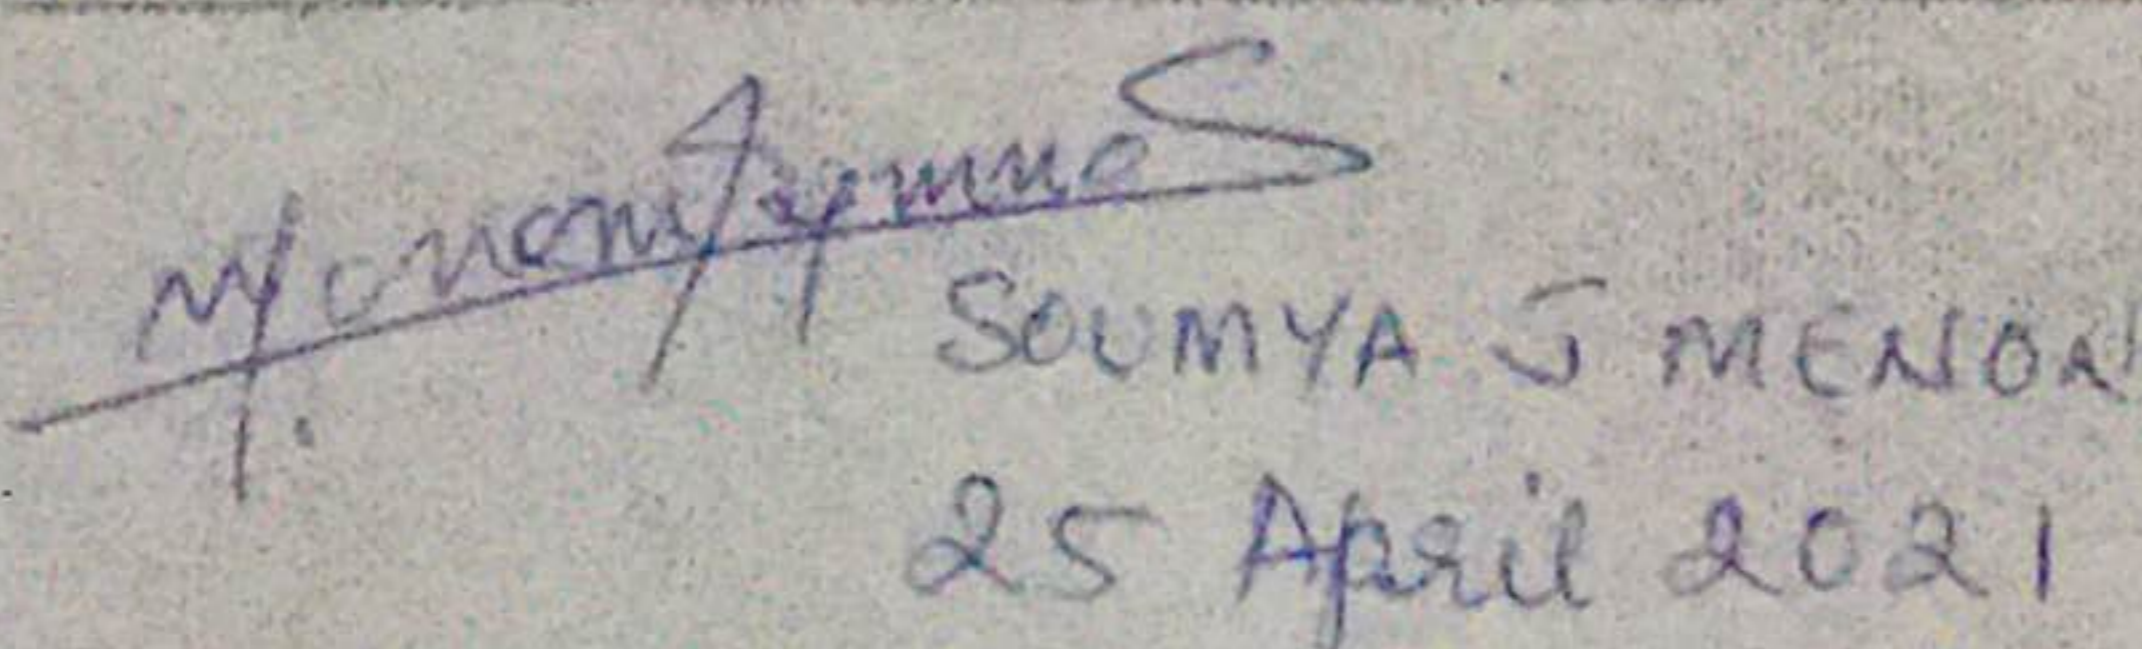 SOUMYA J MENON
25 April 2021